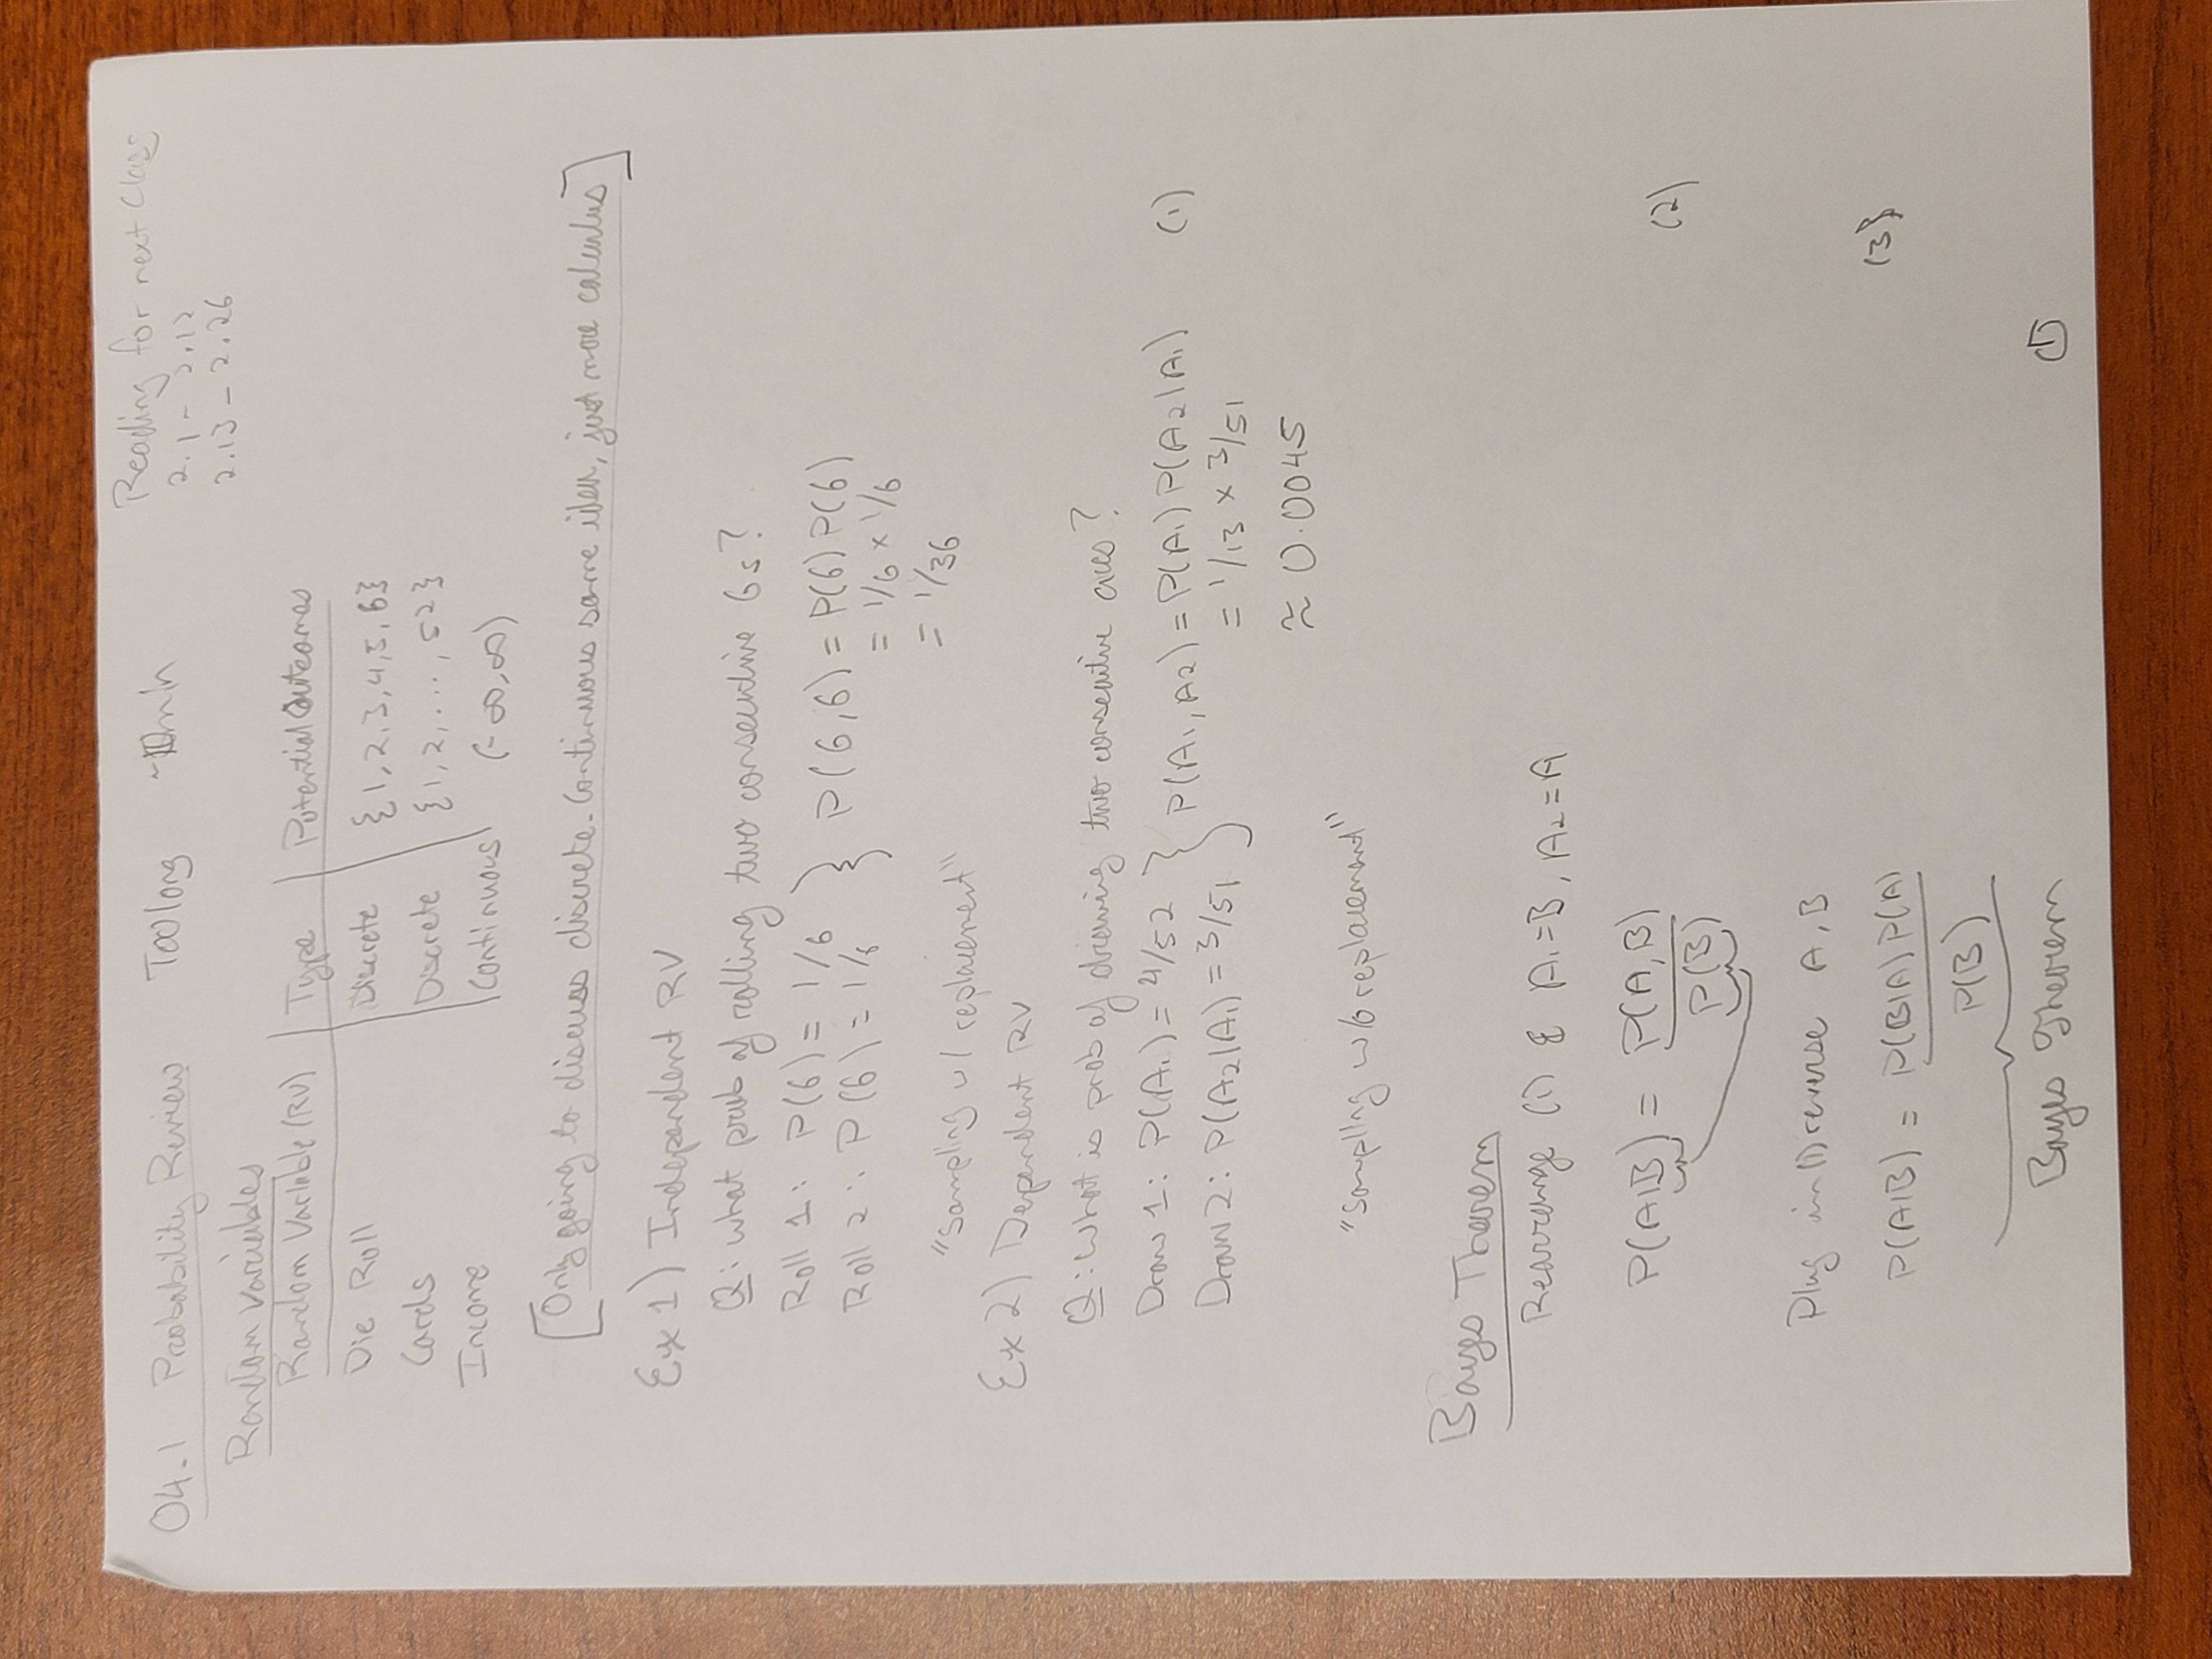 04.1 Probability Review Too long ~10min
Reading for next Class
2.1 - 2.12
2.13 - 2.26
Random Variables
Random Variable (RV) | Type | Potential Outcomes
Die Roll | Discrete | {1,2,3,4,5,6}
Cards | Discrete | {1,2,...,52}
Income | Continuous | (-∞,∞)
[Only going to discuss discrete. Continuous same idea, just more calculus]
Ex 1) Independent RV
Q: what prob of rolling two consecutive 6s?
Roll 1: P(6) = 1/6
Roll 2: P(6) = 1/6
} P(6,6) = P(6)P(6)
= 1/6 × 1/6
= 1/36
"Sampling w/ replacement"
Ex 2) Dependent RV
Q: What is prob of drawing two consecutive aces?
Draw 1: P(A₁) = 4/52
Draw 2: P(A₂|A₁) = 3/51
} P(A₁,A₂) = P(A₁)P(A₂|A₁) (1)
= 1/13 × 3/51
≈ 0.0045
"Sampling w/o replacement"
Bayes Theorem
Rearrange (1) & A₁=B, A₂=A
P(A|B) = P(A,B) / P(B) (2)
Plug in (1) reverse A,B
P(A|B) = P(B|A)P(A) / P(B) (3)
Bayes Theorem
1